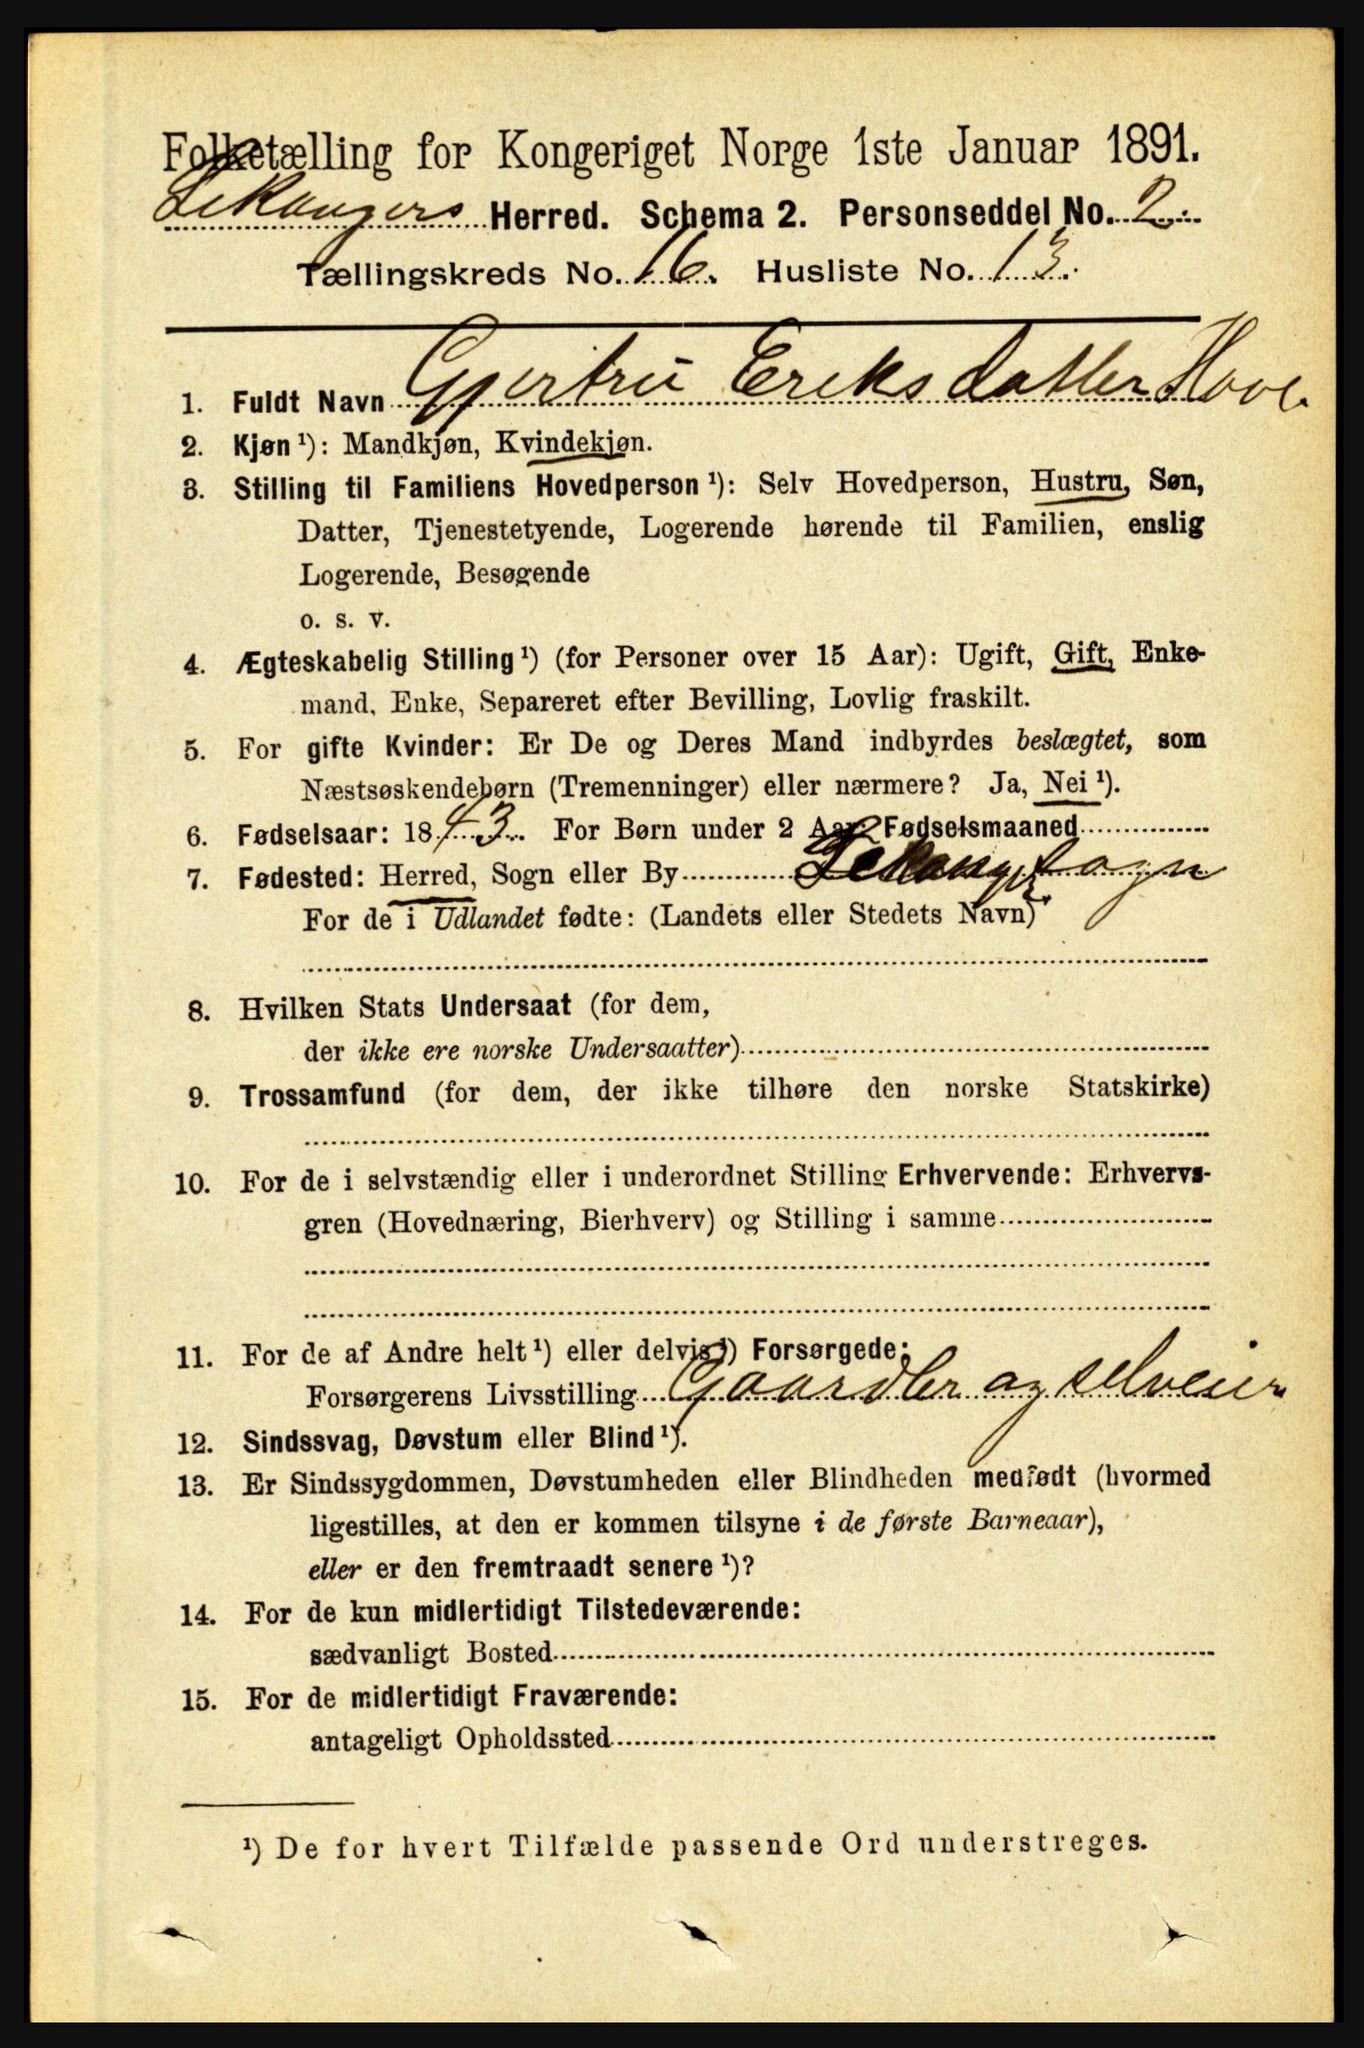 Folketælling for Kongeriget Norge 1ste Januar 1891.
Lekangers Herred. Schema 2. Personseddel No. 2
Tællingskreds No. 16. Husliste No. 13.
1. Fuldt Navn Gjertru Eriksdatter Hove
2. Kjøn ¹): Mandkjøn, Kvindekjøn.
3. Stilling til Familiens Hovedperson ¹): Selv Hovedperson, Hustru, Søn,
Datter, Tjenestetyende, Logerende hørende til Familien, enslig
Logerende, Besøgende
o. s. v.
4. Ægteskabelig Stilling ¹) (for Personer over 15 Aar): Ugift, Gift, Enke-
mand, Enke, Separeret efter Bevilling, Lovlig fraskilt.
5. For gifte Kvinder: Er De og Deres Mand indbyrdes beslægtet, som
Næstsøskendebørn (Tremenninger) eller nærmere? Ja, Nei ¹).
6. Fødselsaar: 1843. For Børn under 2 Aar: Fødselsmaaned
7. Fødested: Herred, Sogn eller By Lekanger sogn
For de i Udlandet fødte: (Landets eller Stedets Navn)
8. Hvilken Stats Undersaat (for dem,
der ikke ere norske Undersaatter)
9. Trossamfund (for dem, der ikke tilhøre den norske Statskirke)
10. For de i selvstændig eller i underordnet Stilling Erhvervende: Erhvervs-
gren (Hovednæring, Bierhverv) og Stilling i samme
11. For de af Andre helt ¹) eller delvis ¹) Forsørgede:
Forsørgerens Livsstilling Gaardbr og selveier
12. Sindssvag, Døvstum eller Blind ¹).
13. Er Sindssygdommen, Døvstumheden eller Blindheden medfødt (hvormed
ligestilles, at den er kommen tilsyne i de første Barneaar),
eller er den fremtraadt senere ¹)?
14. For de kun midlertidigt Tilstedeværende:
sædvanligt Bosted
15. For de midlertidigt Fraværende:
antageligt Opholdssted
¹) De for hvert Tilfælde passende Ord understreges.